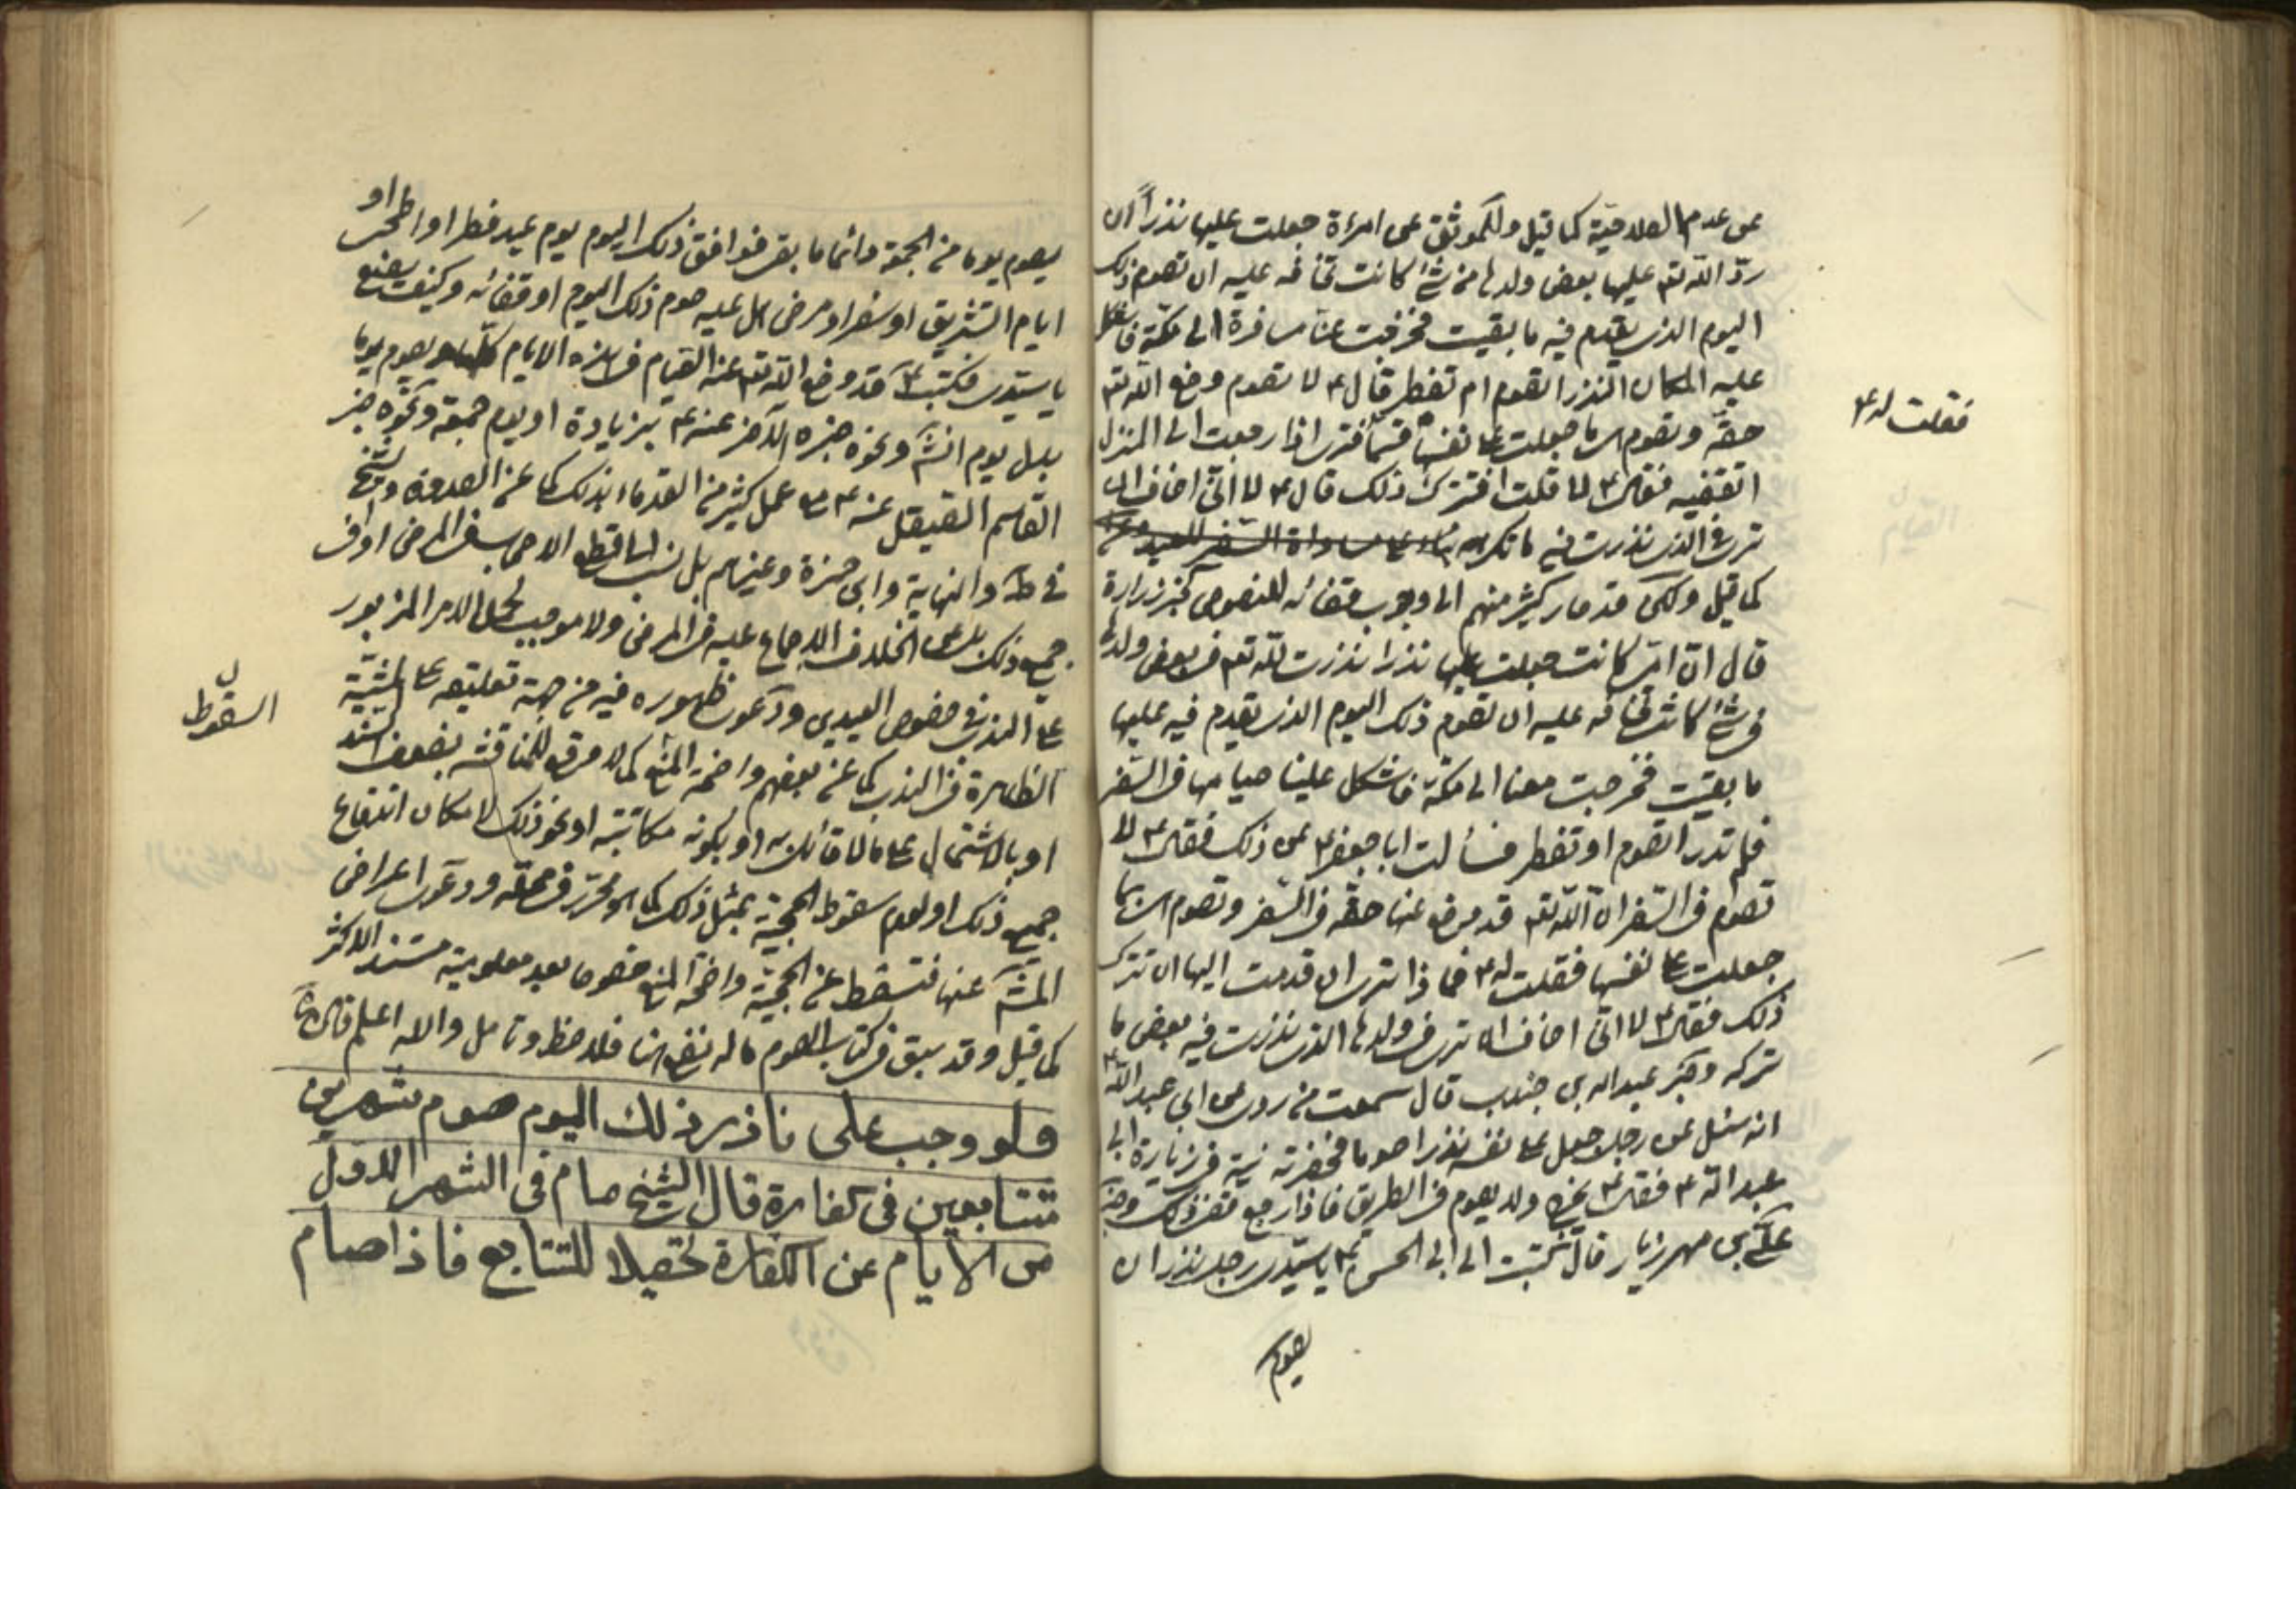 عن عدم الصلاحية كما قيل وللموثق عن امرءة جعلت عليها نذراً ان
ردّ الله تعـ عليها بعض ولدها من شئ كانت تخافه عليه ان تصوم ذلك
اليوم الذى يقدم فيه ما بقيت فخرجت معنا مسافرة الى مكة فاشكل
عليه المكان النذر اتصوم ام تفطر قال ع لا تصوم وضع الله تعـ
حقه وتصوم هى ما جعلت على نفسها قلت فترى اذا رجعت الى المنزل
اتقضيه فقال ع لا قلت افتترك ذلك قال ع لا انى اخاف ان
ترى فى الذى نذرت فيه ما تكره
كما قيل ولكن قد صار كثير منهم الى وجوب قضائه للنصوص كخبر زرارة
قال ان امى كانت جعلت عليها نذرا نذرت لله تعـ فى بعض ولدها
فى شئ كانت تخافه عليه ان تصوم ذلك اليوم الذى يقدم فيه عليها
ما بقيت فخرجت معنا الى مكة فاشكل علينا صيامها فى السفر
فلم تدر اتصوم او تفطر فسألت ابا جعفر ع عن ذلك فقال ع لا
تصوم فى السفر ان الله تعـ قد وضع عنها حقه فى السفر وتصوم هى ما
جعلت على نفسها فقلت له ع فماذا ترى ان قدمت اليها ان تترك
ذلك فقال ع لا انى اخاف ان ترى فى ولدها الذى نذرت فيه بعض ما
تركه وخبر عبد الله بن جندب قال سمعت من روى عن ابى عبد الله ع
انه سئل عن رجل جعل على نفسه نذرا صوما فحضرته نية فى زيارة ابى
عبد الله ع فقال ع يخرج ولا يصوم فى الطريق فاذا رجع قضى ذلك وخبر
على بن مهزيار قال كتبت الى ابى الحسن ع يا سيدى رجل نذر ان
يصوم
فقلت له ع
يصوم يوما من الجمعة دائما ما بقى فوافق ذلك اليوم يوم عيد فطر او اضحى او
ايام التشريق او سفر او مرض هل عليه صوم ذلك اليوم او قضائه وكيف يصنع
يا سيدى فكتب ع قد وضع الله تعـ عنه الصيام فى هذه الايام كلها ويصوم يوما
بدل يوم انشـ ونحوه خبره الآخر عنه ع بزيادة او يوم جمعة ونحوه خبر
القاسم الصيقل عنه ع مع عمل كثير من القدماء بذلك كما عن الصدوق والشيخ
فى ط والنهاية وابى حمزة وغيرهم بل نسب
جميع ذلك الخلاف الاجماع عليه فى المرض ولا موجب لحمل الامر المزبور
على الندب فى خصوص العيدين ودعوى ظهوره فيه من جهة تعليقه على المشية
الظاهرة فى الندب كما عن بعضهم واضحة المنع كما لا موقع للمناقشة بضعف السند
او بالاشتمال على ما لا قائل به او بكونه مكاتبة او نحو ذلك لامكان اندفاع
جميع ذلك او لعدم سقوط الحجية بمثل ذلك كما هو محرر فى محله ودعوى اعراض
المشـ عنها فتسقط عن الحجية واضحة المنع خصوصا بعد معلومية مستند الاكثر
كما قيل وقد سبق فى كتاب الصوم ما له نفع هنا فلاحظ وتأمل والله اعلم
فلو وجب على ناذر ذلك اليوم صوم شهرين
متتابعين فى كفارة قال الشيخ صام فى الشهر الاول
من الايام عن الكفارة تحصيلا للتتابع فاذا صام
السقوط